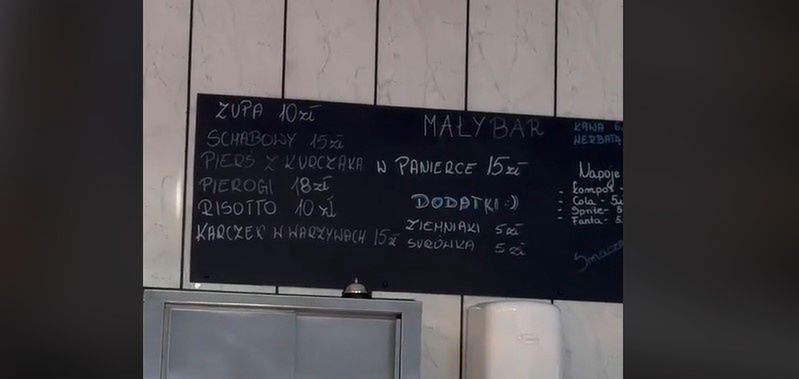 MAŁY BAR
ZUPA 10zł
SCHABOWY 15zł
PIERŚ Z KURCZAKA W PANIERCE 15zł
PIEROGI 18zł
RISOTTO 10zł
KARCZEK W WARZYWACH 15zł
DODATKI :)
ZIEMNIAKI 5zł
SURÓWKA 5zł
KAWA
HERBATA
Napoje
- kompot -
- Cola -
- Sprite -
- Fanta - 5